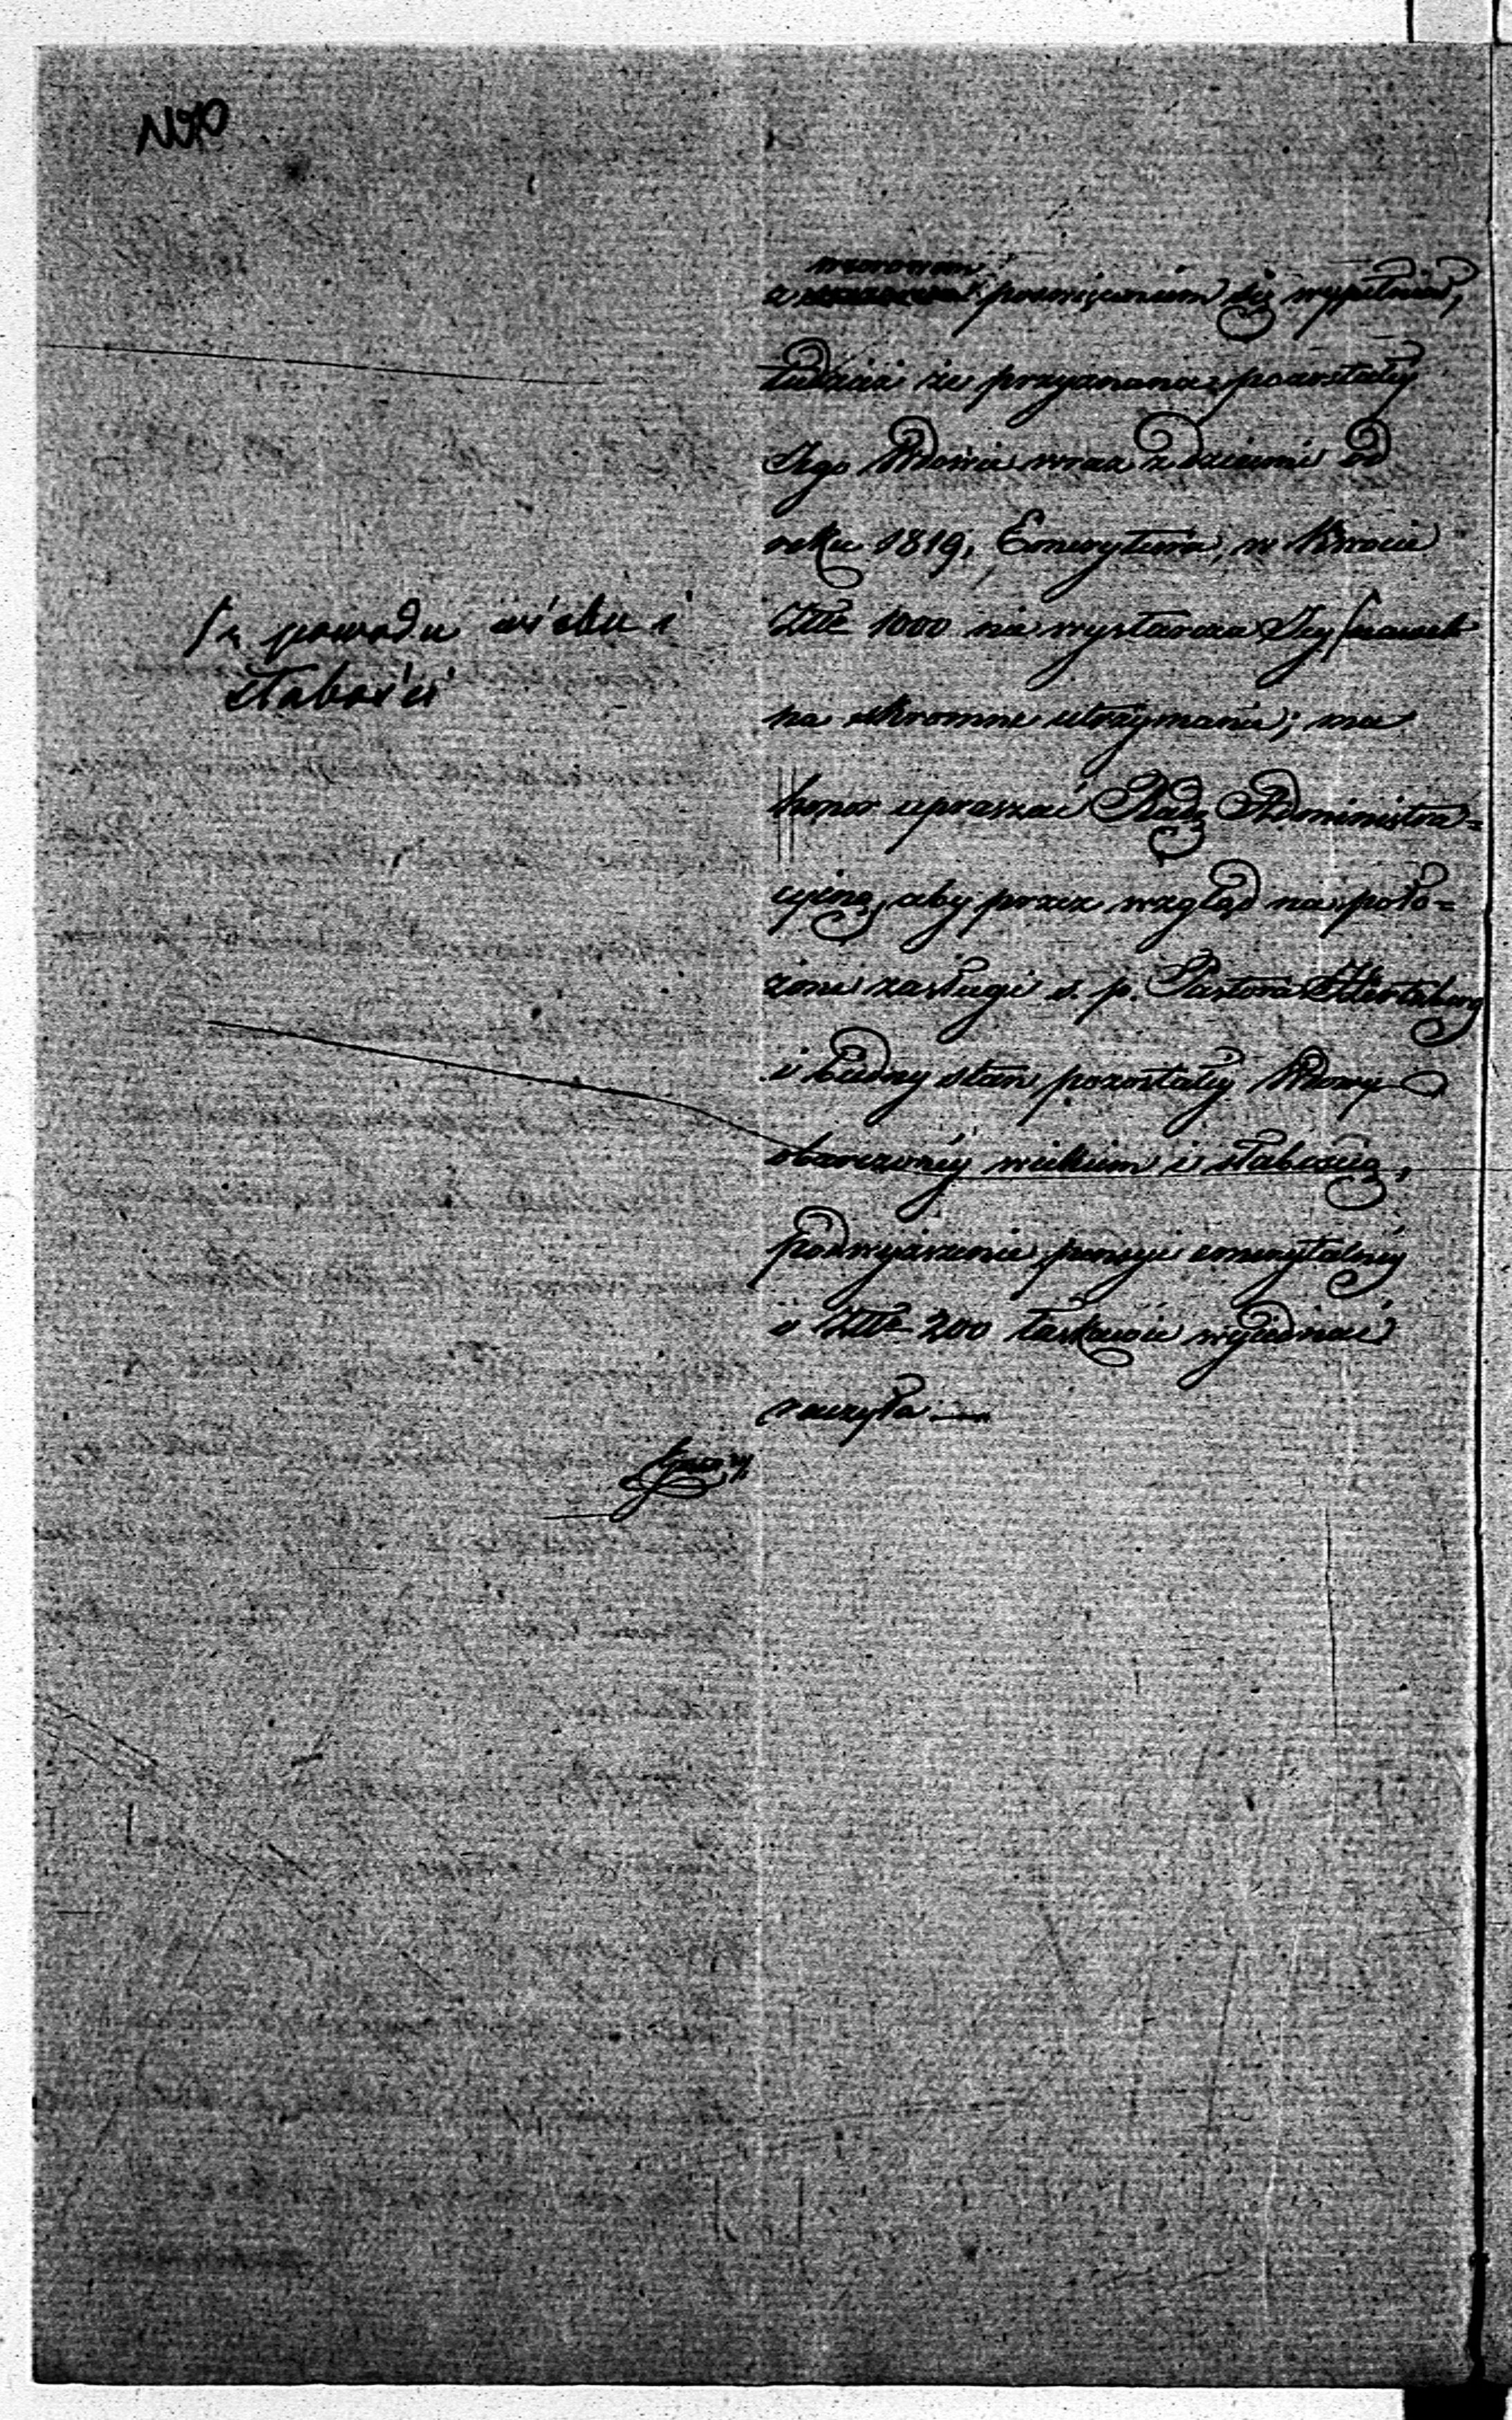 z powodu wieku i
słabości
poświęceniem się wypełniał,
tudzież że przyznana pozostałéy
Jego Wdowie wraz z dziećmi od
roku 1819, Emerytura, w Kwocie
Złłp 1000 nie wystarcza Jey nawet
na skromne utrzymanie; ma
honor upraszać Radę Administra=
cyiną, aby przez wzgląd na poło=
żone zasługi ś. p. Pastora
i biedny stan pozostałéy Wdowy
obarczonéy wiekiem i słabością,
podwyższenie pensyi emerytalnéy
o Złłp 200 łaskawie wyjednać
raczyła —